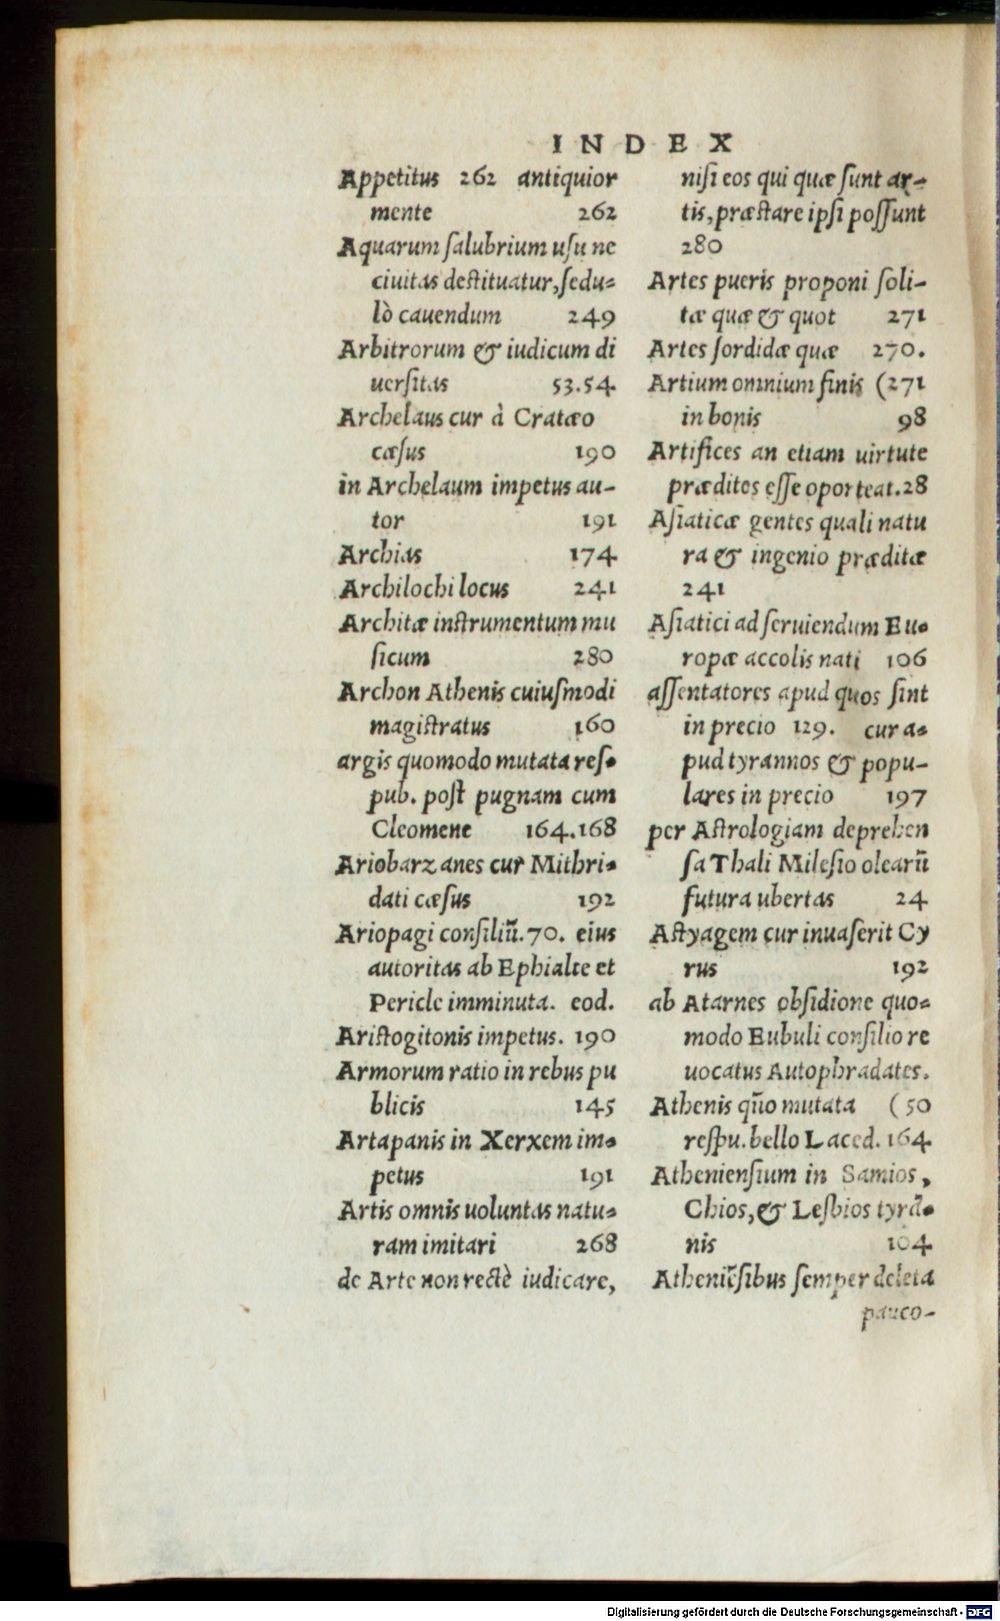 INDEX
Appetitus 262 antiquior
mente 262
Aquarum salubrium usu ne
ciuitas destituatur, sedu-
lò cauendum 249
Arbitrorum & iudicum di
uersitas 53.54
Archelaus cur à Cratæo
cæsus 190
in Archelaum impetus au-
tor 191
Archias 174
Archilochi locus 241
Architæ instrumentum mu
sicum 280
Archon Athenis cuiusmodi
magistratus 160
argis quomodo mutata res-
pub. post pugnam cum
Cleomene 164.168
Ariobarzanes cur Mithri-
dati cæsus 192
Ariopagi consiliũ.70. eius
autoritas ab Ephialte et
Pericle imminuta. eod.
Aristogitonis impetus. 190
Armorum ratio in rebus pu
blicis 145
Artapanis in Xerxem im-
petus 191
Artis omnis uoluntas natu-
ram imitari 268
de Arte non rectè iudicare,
nisi eos qui quæ sunt ar-
tis, præstare ipsi possunt
280
Artes pueris proponi soli-
tæ quæ & quot 271
Artes sordidæ quæ 270.
Artium omnium finis (271
in bonis 98
Artifices an etiam uirtute
præditos esse oporteat.28
Asiaticæ gentes quali natu
ra & ingenio præditæ
241
Asiatici ad seruiendum Eu-
ropæ accolis nati 106
assentatores apud quos sint
in precio 129. cur a-
pud tyrannos & popu-
lares in precio 197
per Astrologiam deprehen
sa Thali Milesio olearũ
futura ubertas 24
Astyagem cur inuaserit Cy
rus 192
ab Atarnes obsidione quo-
modo Eubuli consilio re
uocatus Autophradates.
Athenis quõ mutata (50
respu. bello Laced. 164
Atheniensium in Samios,
Chios, & Lesbios tyrã-
nis 104
Atheniẽsibus semper deleta
pauco-
Digitalisierung gefördert durch die Deutsche Forschungsgemeinschaft - DFG